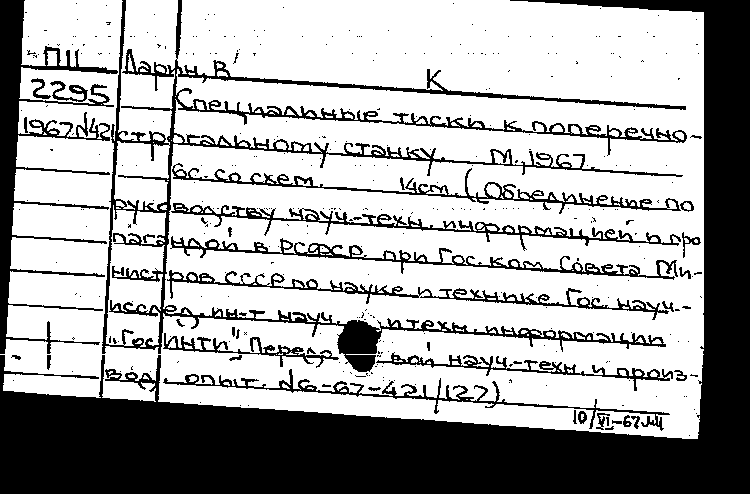 ПЦ Ларин, В
К
2295 Специальные тиски к поперечно-
1967 №421 строгальному станку. М., 1967.
6с. со схем. 14см. („Объединение по
руководству науч.-техн. информацией и про
пагандой в РСФСР при Гос. ком. Совета Ми-
нистров СССР по науке и технике. Гос. науч.-
исслед. ин-т науч. и техн. информации
„ГосИНТИ", Передовой науч.-техн. и произ-
вод. опыт. №6-67-421/127).
10/VI-67